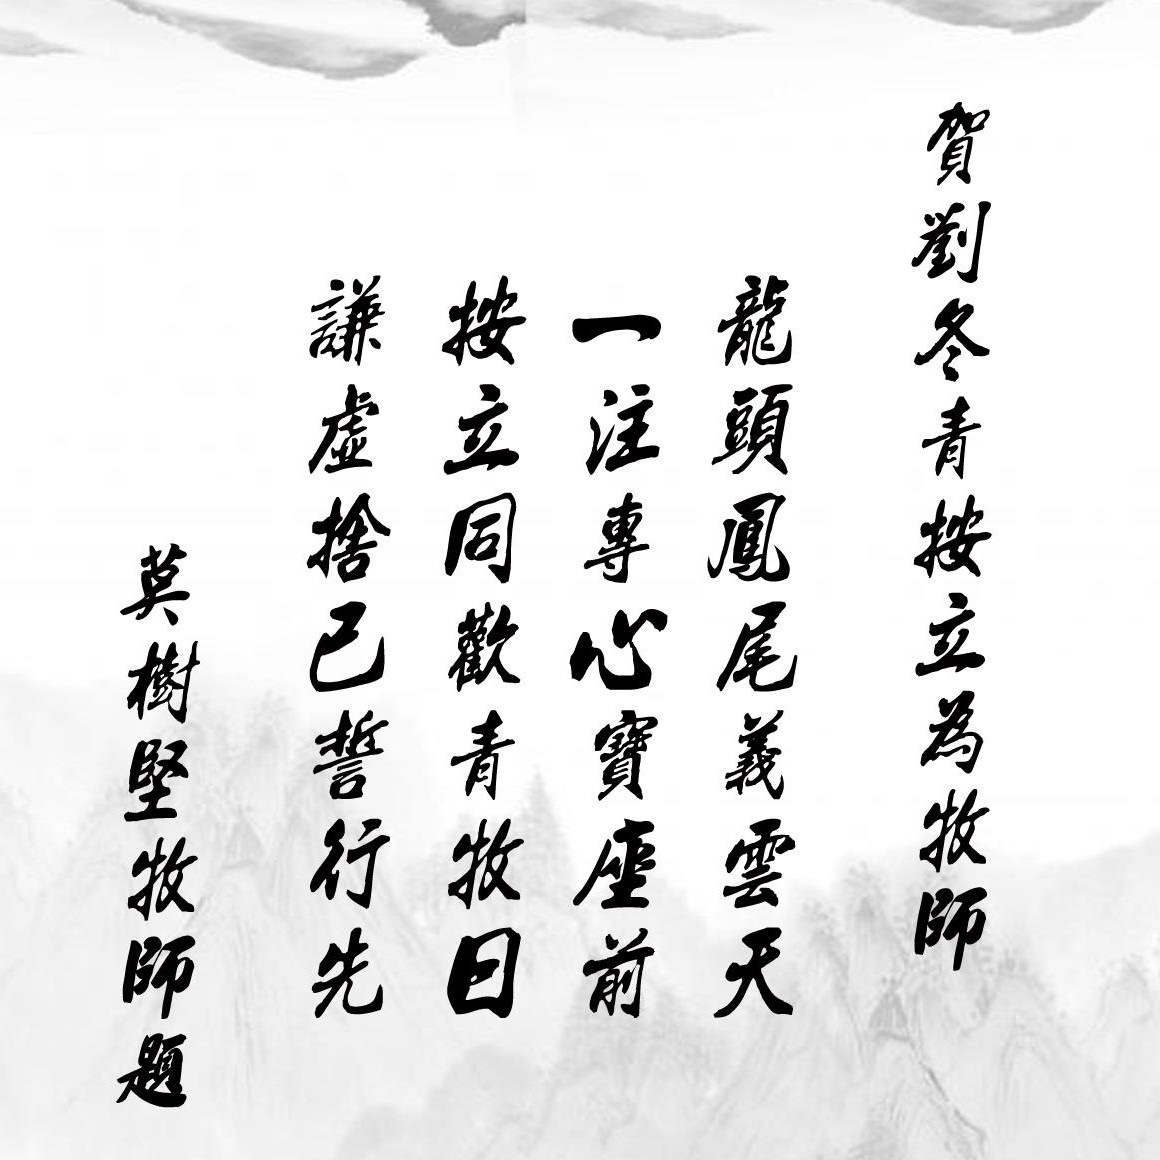 賀劉冬青按立為牧師
龍頭鳳尾義雲天
一注專心寶座前
按立同歡青牧日
謙虛捨己誓行先
莫樹堅牧師題